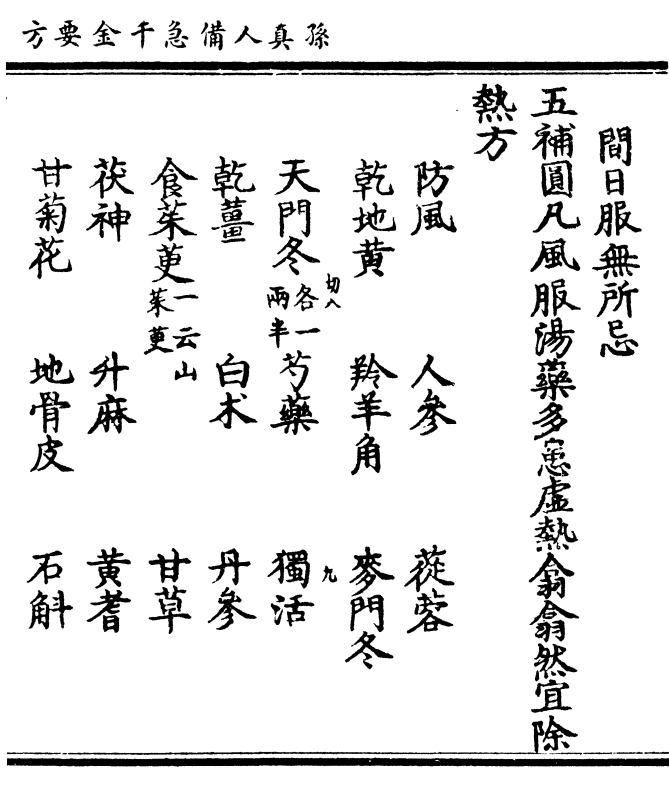 孫真人備急千金要方
間日服無所忌
五補圓凡風服湯藥多患虛熱翕翕然宜除
熱方
防風 人參 蓯蓉
乾地黃 羚羊角 麥門冬
天門冬各一兩半 芍藥 獨活
乾薑 白朮 丹參
食茱萸一云山茱萸 甘草
茯神 升麻 黃耆
甘菊花 地骨皮 石斛